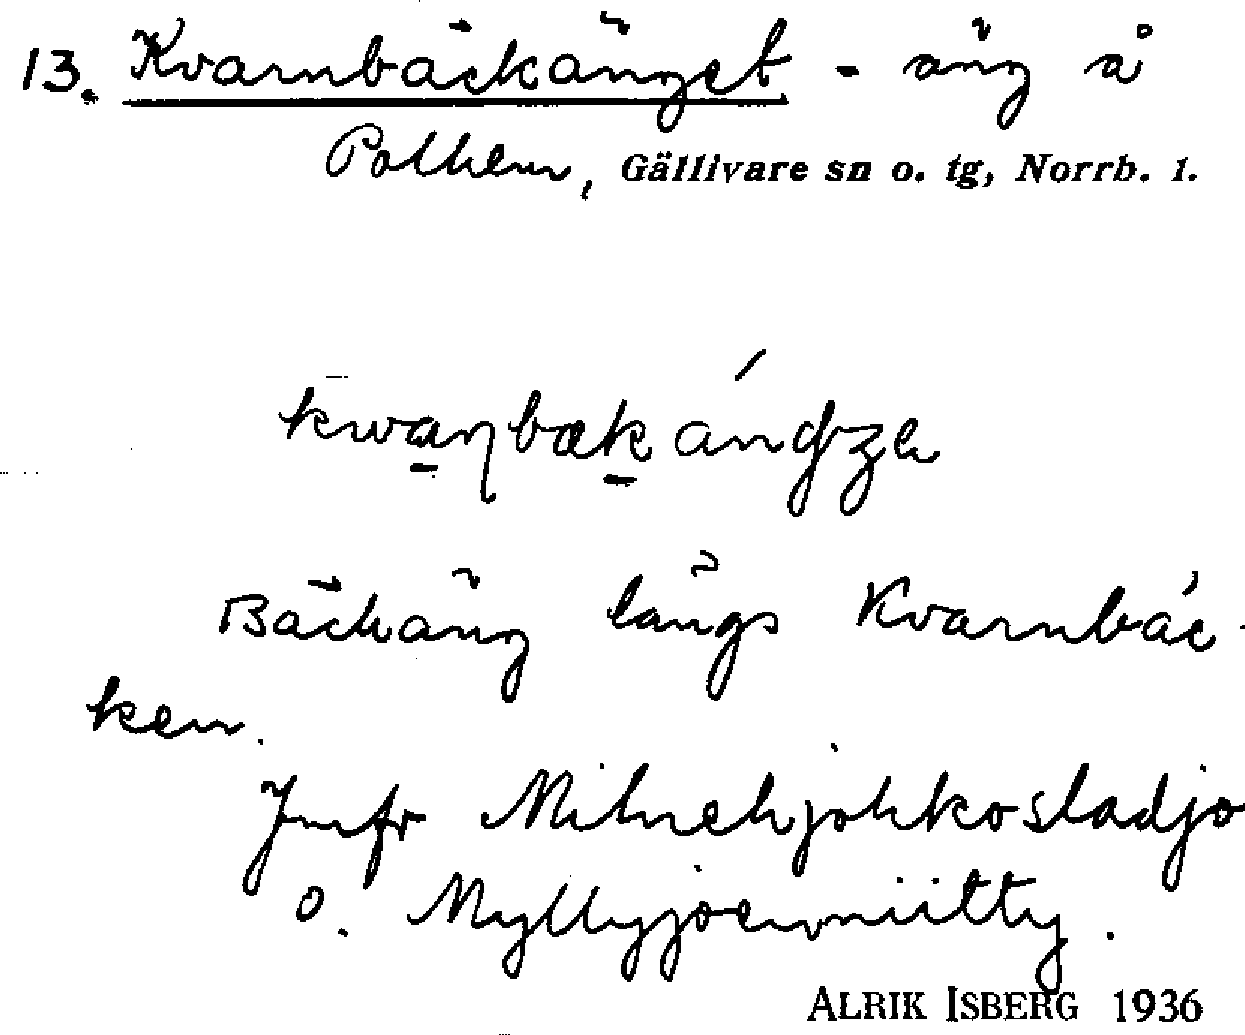 13. Kvarnbäckänget - äng å
Polhem, Gällivare sn o. tg, Norrb. l.
Bäckäng längs Kvarnbäc-
ken.
Jmfr Milnehjohkosladjo
o. Myllyjoenniitty.
ALRIK ISBERG 1936